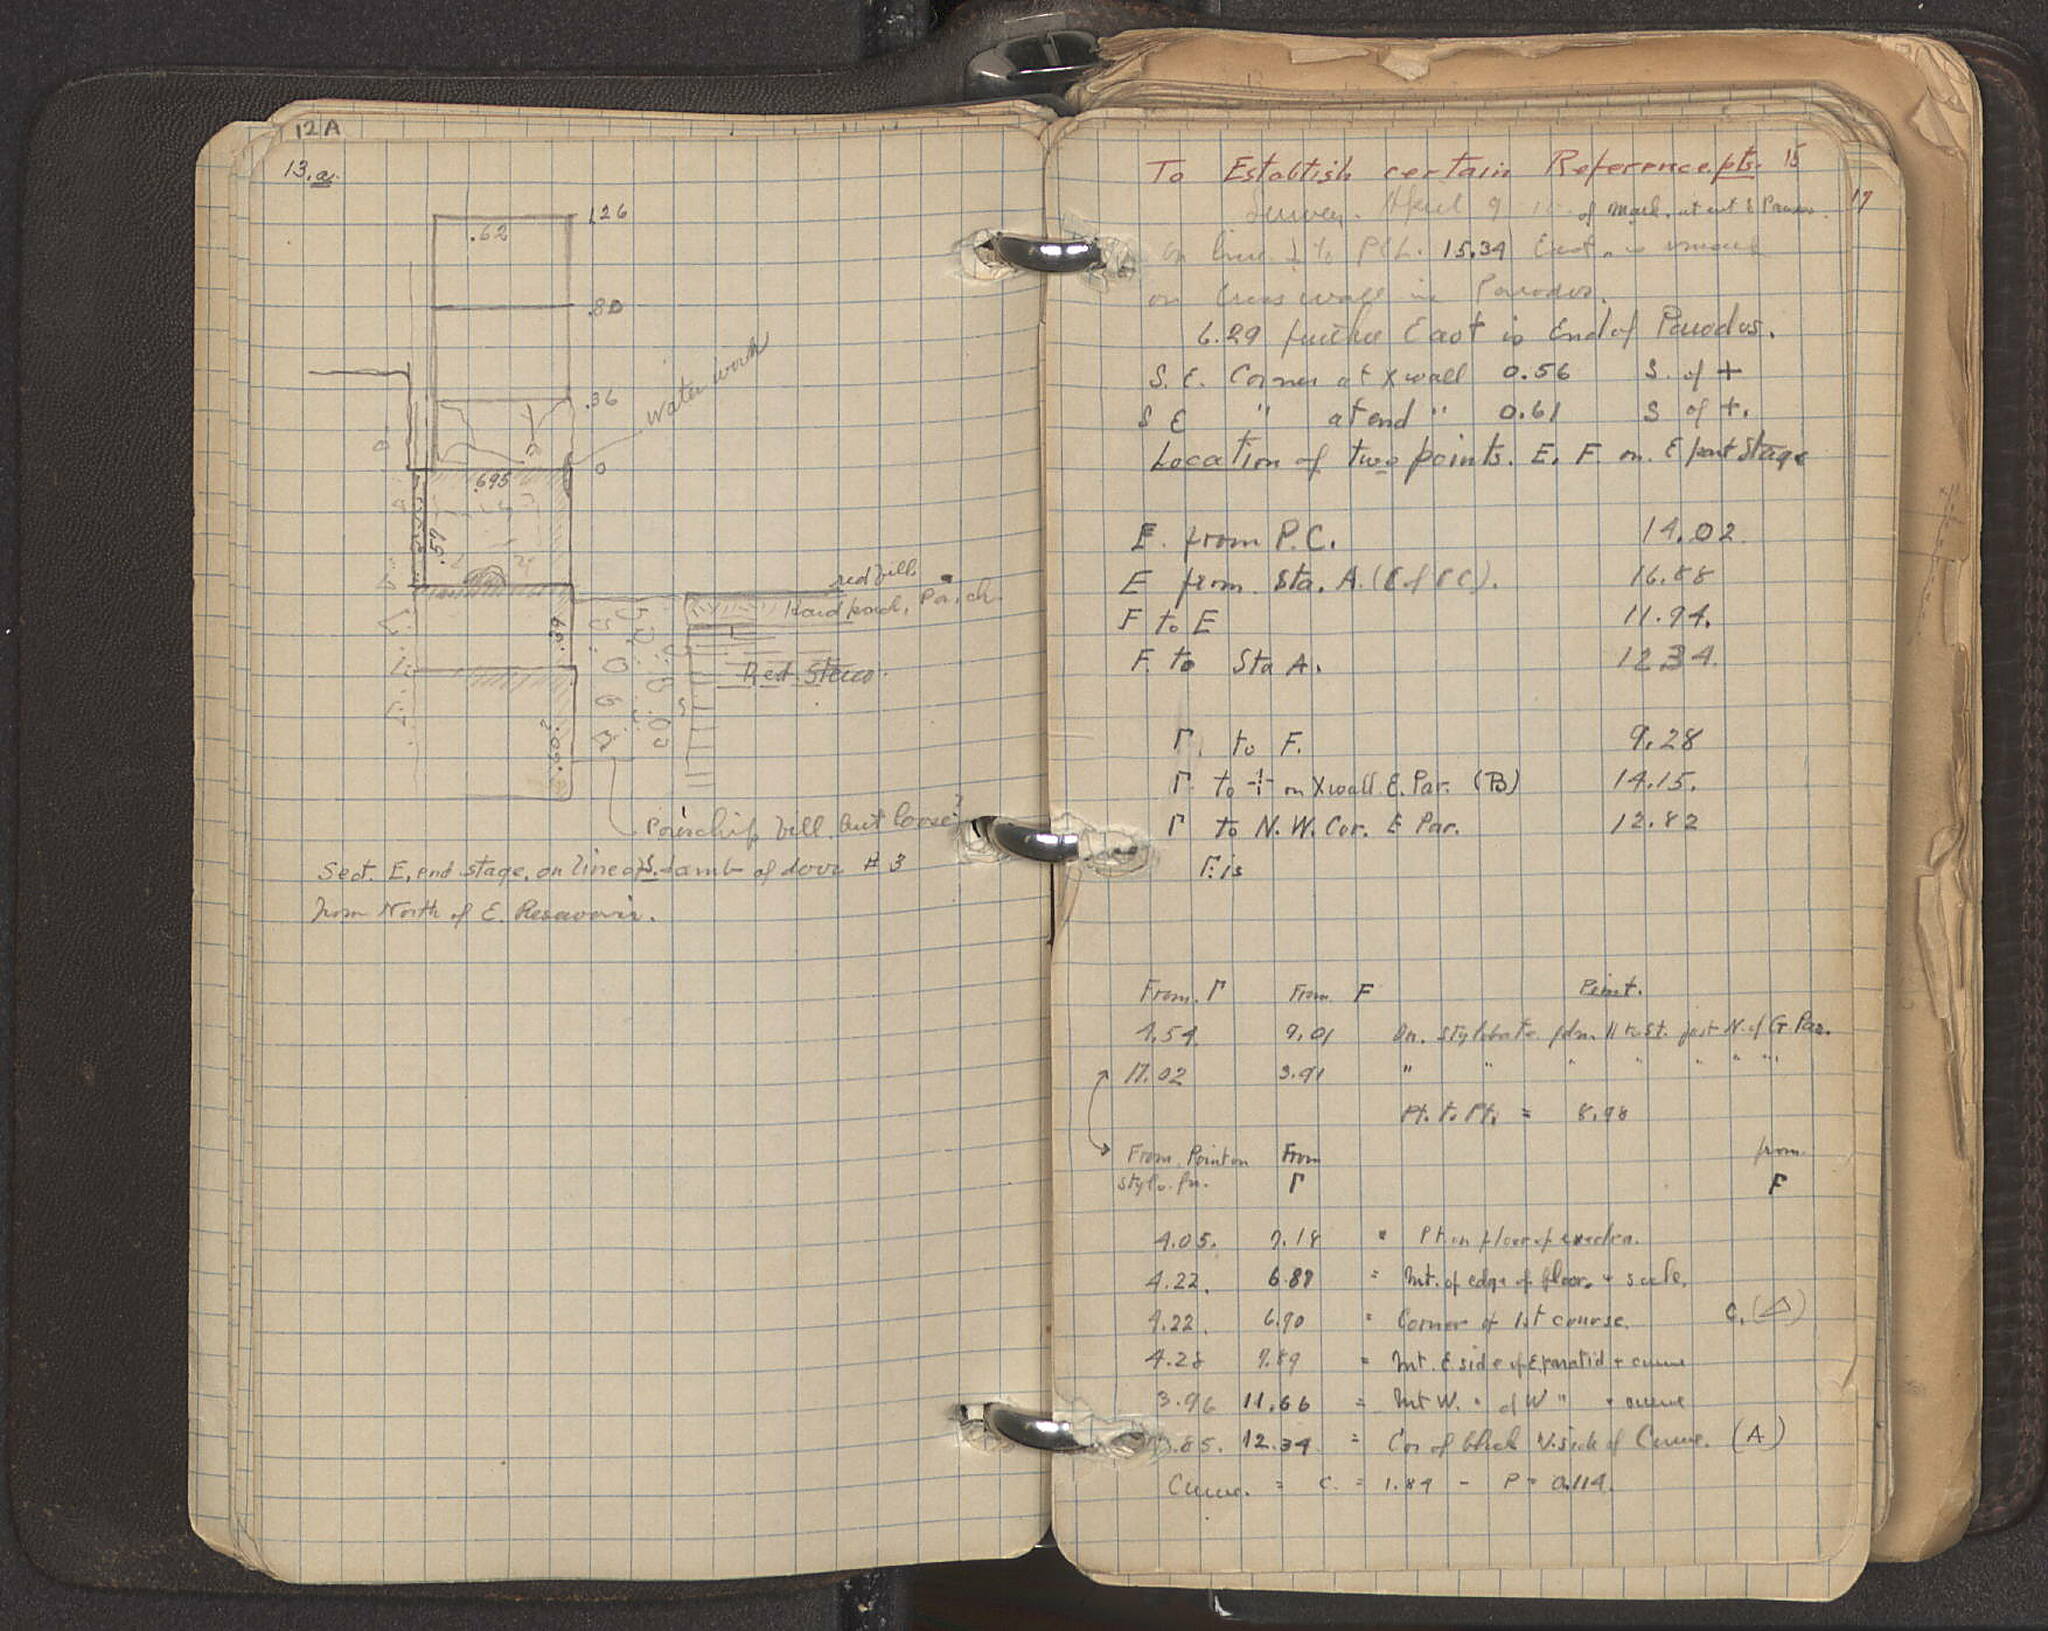 12A
13.a.
1.26
.62
.80
.36
Water work
0
.695
.57
red fill
Hard pack.
.59
Red Stucco.
.50.
Poros chip fill but loose?
Sect. E. end stage, on line of S. Jamb of door #3
from North of E. Reservoir.
To Establish certain Reference pts. 15
April 9 of at 17
on line to 15.34 East is
on Cross wall in Parodos.
6.29 further East is End of Parodos.
S.E. Corner at X wall 0.56 S. of +
S E " at end " 0.61 S of +.
Location of two points. E, F. on E part Stage
E. from P.C. 14.02
E from Sta. A. 16.88
F to E 11.94.
F. to Sta A. 12 34.
Γ. to F. 9.28
Γ. to + on X wall E. Par. (B) 14.15.
Γ to N.W. Cor. E Par. 12.82
Γ is
From. Γ From F Point.
9.01 On. stylobate fdn. || to St. just N. of Par.
17.02 3.91 " " " " " " "
Pt. to Pt. = 8.98
From Point on From from
stylo. fn. Γ F
4.05. 7.18 " Pt on floor of exedra.
4.22. 6.87 = Int. of edge of floor +
4.22. 6.90 " Corner of 1st course. C. (Δ)
4.28 7.89 = Int. E side of E parastid + curve
3.96 11.66 = Int W. " of W " + curve
.85. 12.34 = Cor of block N. side of Curve. (A)
Curve. = C. = 1.84 - P = 0.114.